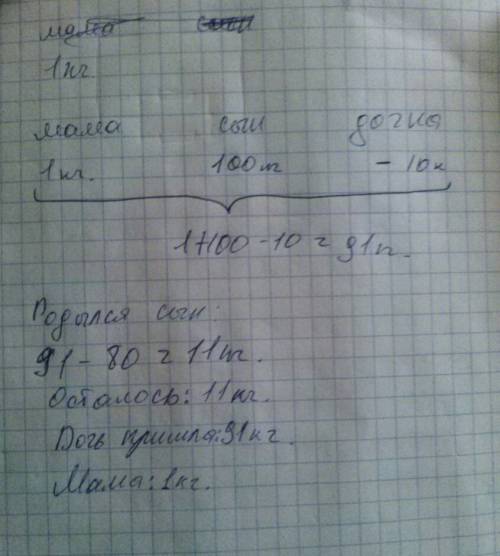 1 кг.
мама сын дочка
1 кг. 100 кг - 10 к
1+100-10 = 91 к.
Родылся сын:
91 - 80 = 11 кг.
Осталось: 11 кг.
Дочь пришла: 91 кг.
Мама: 1 кг.